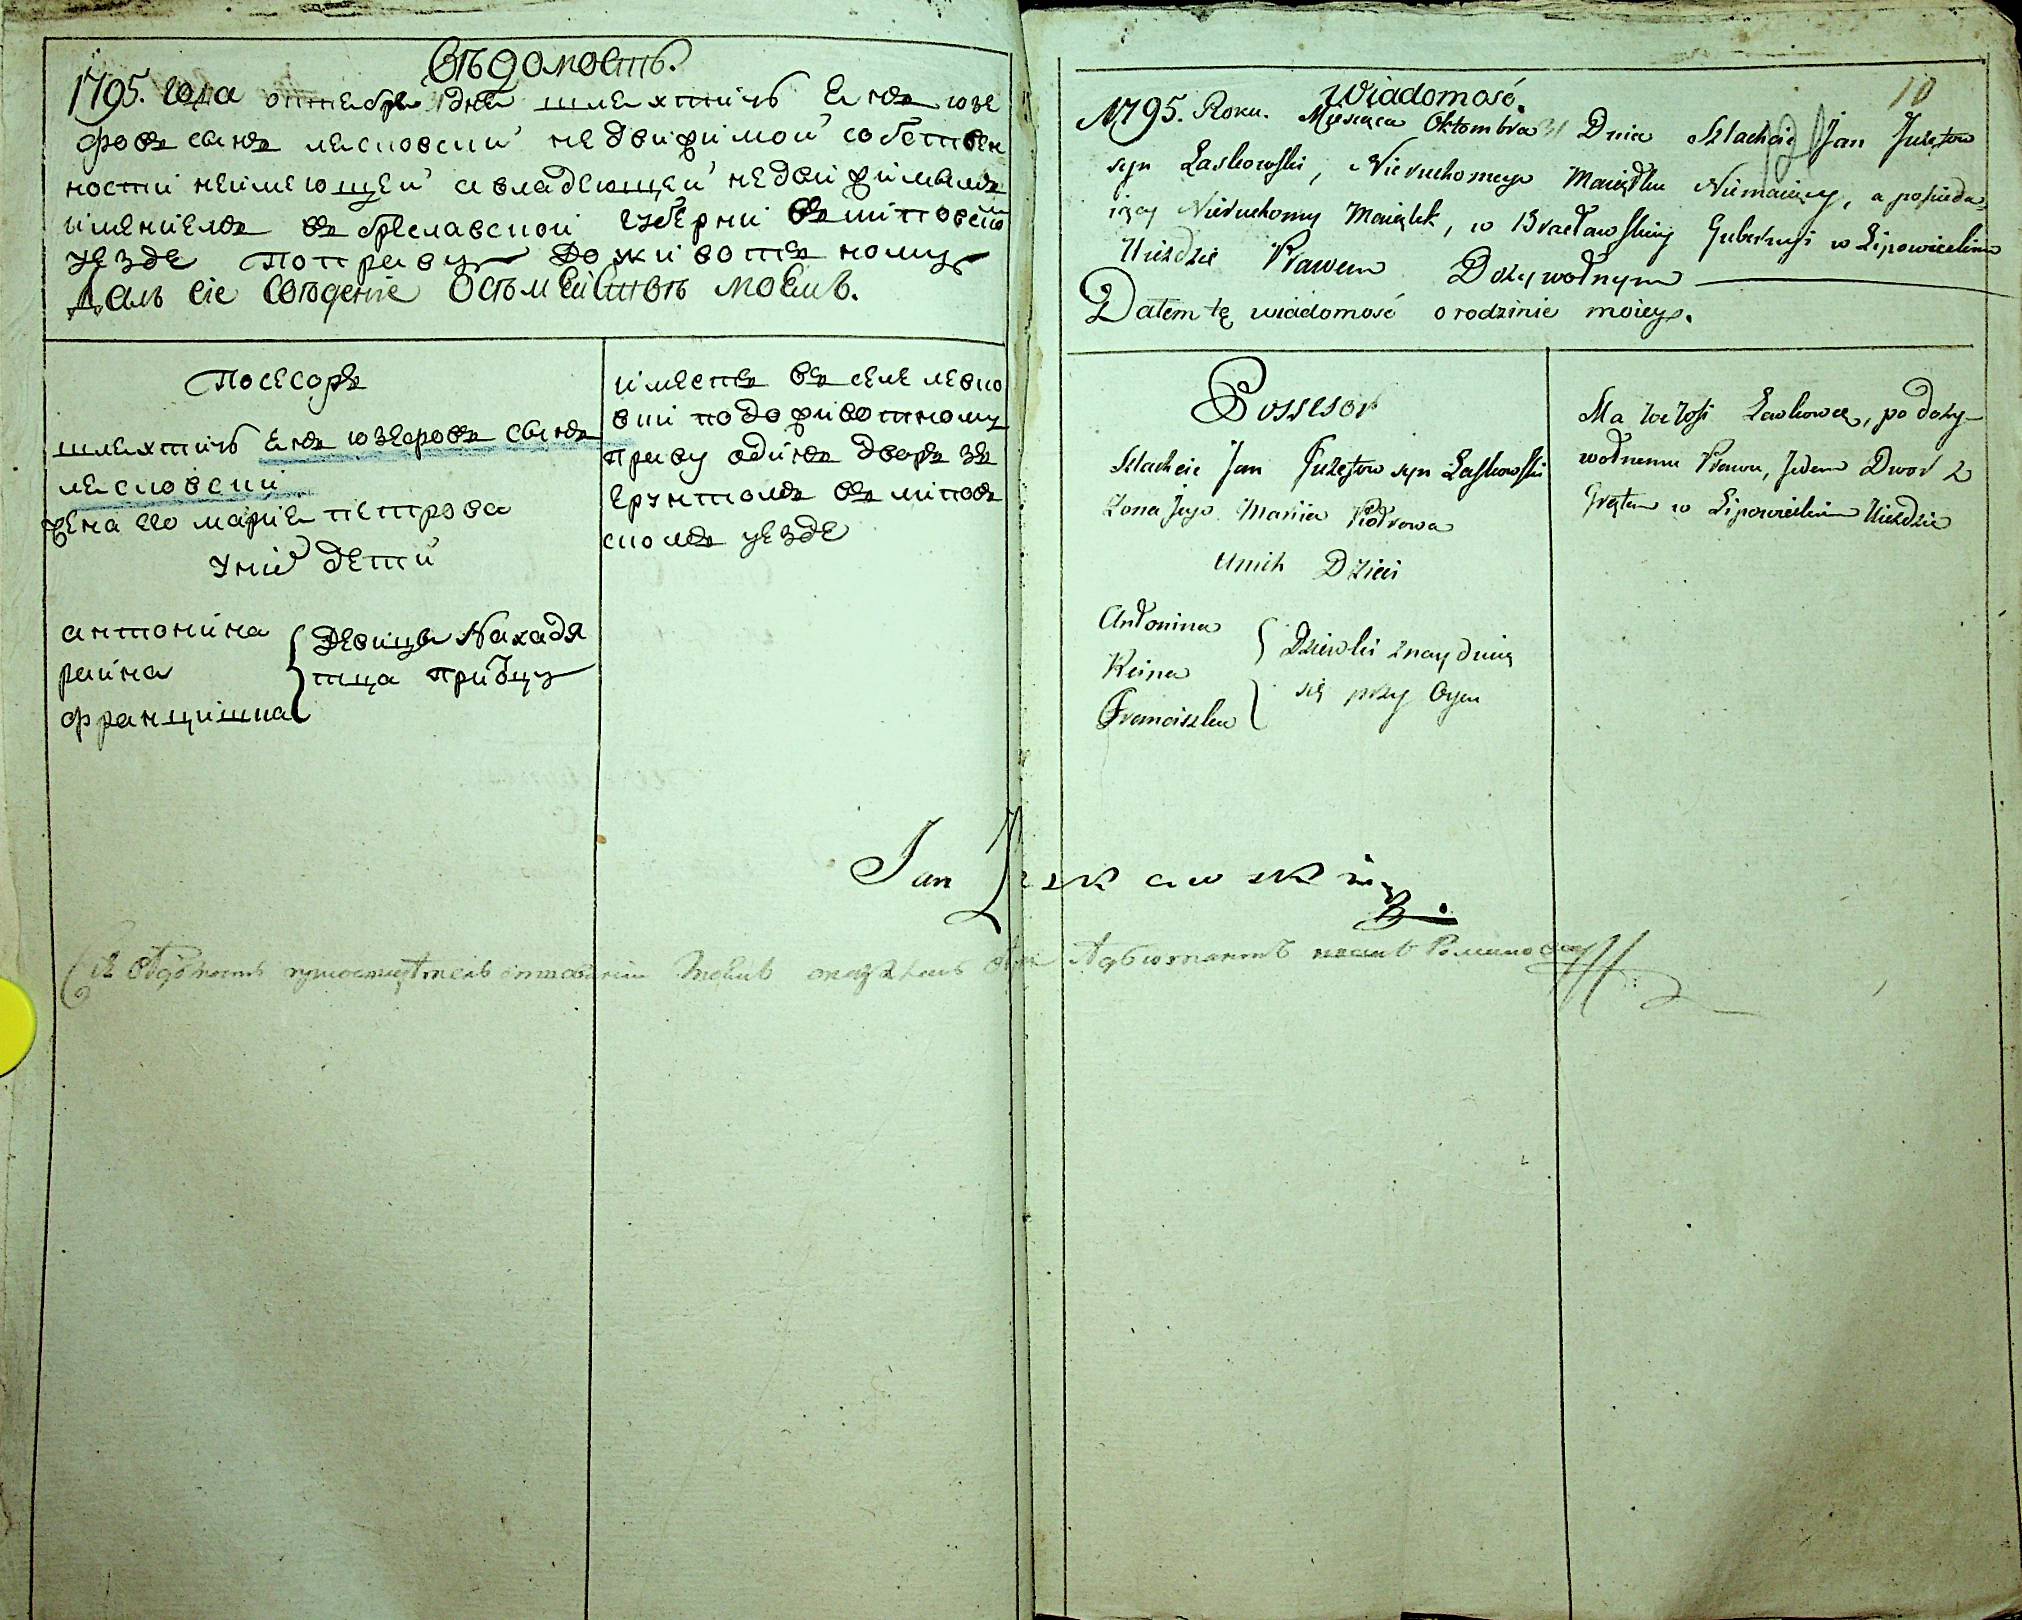 Вѣдомость.
1795. Года октебря дня шляхтичъ Янъ юзе
фовъ сынъ ласковскй недвижимой собствен
ности неимеющей авладеющей недвижимымъ
имениемъ въ браславской губернй въ липовско
уезде поправу дожывотъ ному
Даль сіе Свѣденіе Осѣмействѣ моемъ.
Посесоръ
шляхтичъ Янъ юзефовъ сынъ
ласковскй
жена его мария петрова
уних дети
антонина
раина
францишка
Девицы Находя
тца приотцу
имеетъ въ селе левко
вки подоживотному
праву одинъ дворъ зъ
грунтомъ въ липов
скомъ уезде
Jan Laskawski
Адъютантъ
10
Wiadomość.
1795. Roku. Miesiąca Oktombra 31 Dnia Szlachcic Jan Juzefow
syn Laskowski, Nieruchomego Maiątku Niemaiący, a posiada
iący Nieruchomy Maiątek, w Bracławskiey Gubernyi w Lipowieckim
Uiezdzie Prawem Dożywotnym
Dałem tę wiadomość o rodzinie moiey.
Possesor
Szlachcic Jan Juzefow syn Laskowski
Żona Jego Maria Piotrowa
Unich Dzieci
Antonina
Reina
Franciszka
Dziewki znayduią
się przy Oycu
Ma we Wsi Lewkowce, podoży
wotnemu Prawu, Jeden Dwor z
Grętem w Lipowieckim Uiezdzie